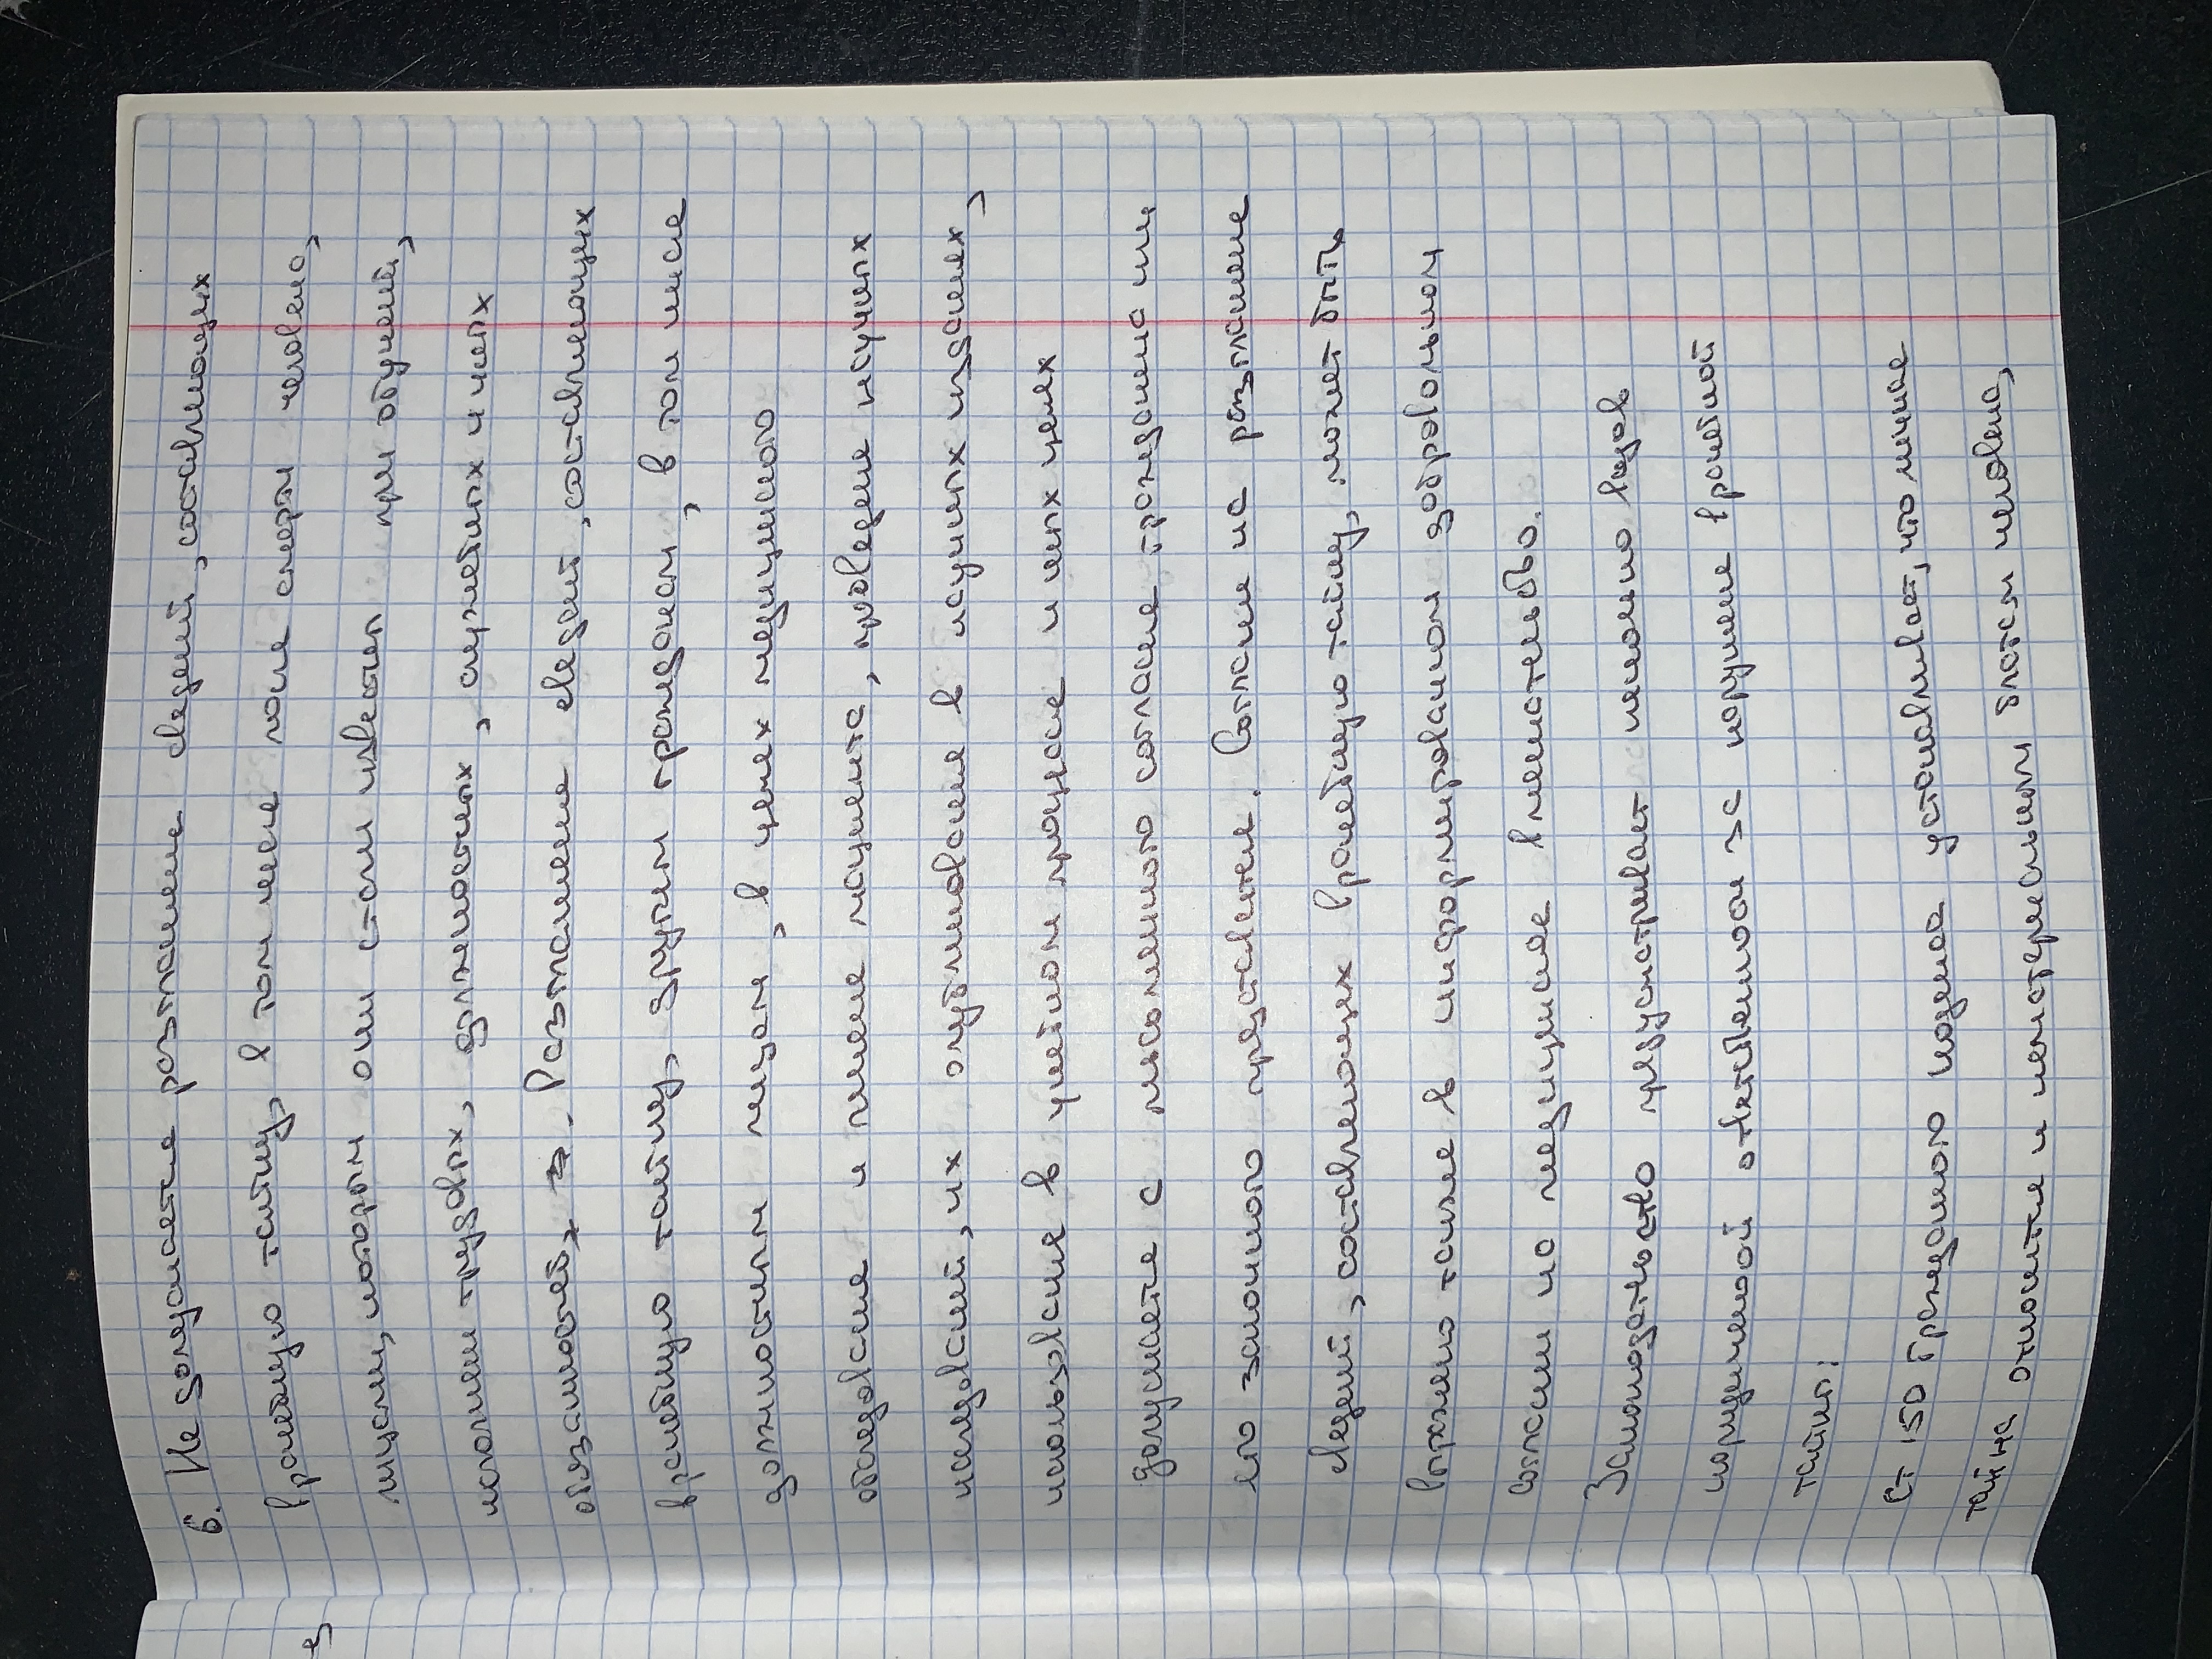 6. Не допускается разглашение сведений, составляющих
врачебную тайну, в том числе после смерти человека,
лицами, которым они стали известны при обучении,
исполнении трудовых, должностных, служебных и иных
обязанностей. Разглашение сведений, составляющих
врачебную тайну, другим гражданам, в том числе
должностным лицам, в целях медицинского
обследования и лечения пациента, проведения научных
исследований, их опубликования в научных изданиях,
использования в учебном процессе и иных целях
допускается с письменного согласия гражданина или
его законного представителя. Согласие на разглашение
сведений, составляющих врачебную тайну, может быть
выражено также в информированном добровольном
согласии на медицинское вмешательство.
Законодательство предусматривает несколько видов
юридической ответственности за нарушение врачебной
тайны:
Ст 150 Гражданского кодекса устанавливает, что личная
тайна относится к нематериальным благам человека,